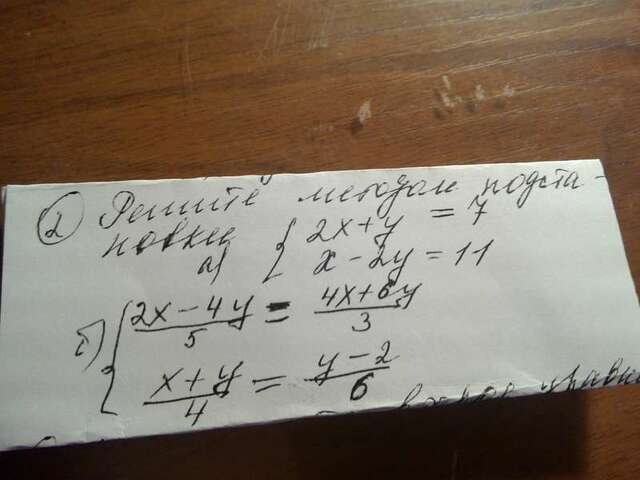 2) Решите методом подста-
новки
а) { 2x+y = 7
x-2y=11
б) { (2x-4y)/5 = (4x+6y)/3
(x+y)/4 = (y-2)/6